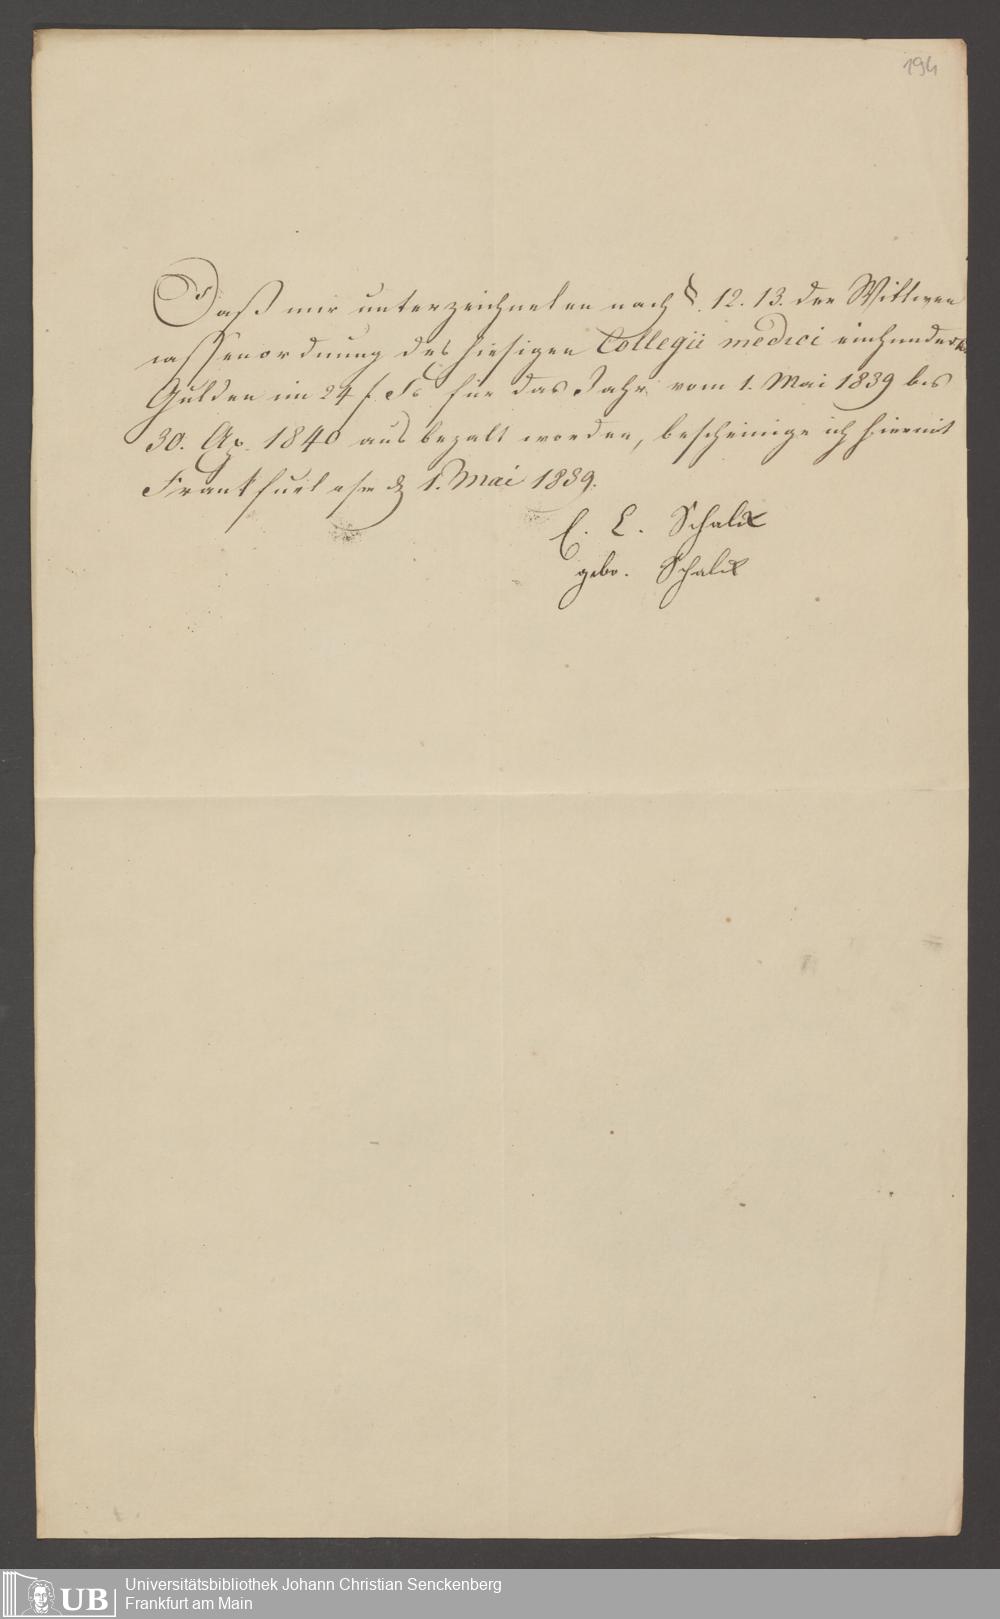 194
Daß mir unterzeichneten nach § 12. 13. der Wittwen
cassenordnung des hiesigen Collegii medici einhundert
Gulden im 24 f. Fß für das Jahr vom 1. Mai 1839 bis
30. Ap. 1840 ausbezalt worden, bescheinige ich hiermit
Frankfurt a/m d 1. Mai 1839.
C. L. Schalck
gebo. Schalck
UB
Universitätsbibliothek Johann Christian Senckenberg
Frankfurt am Main